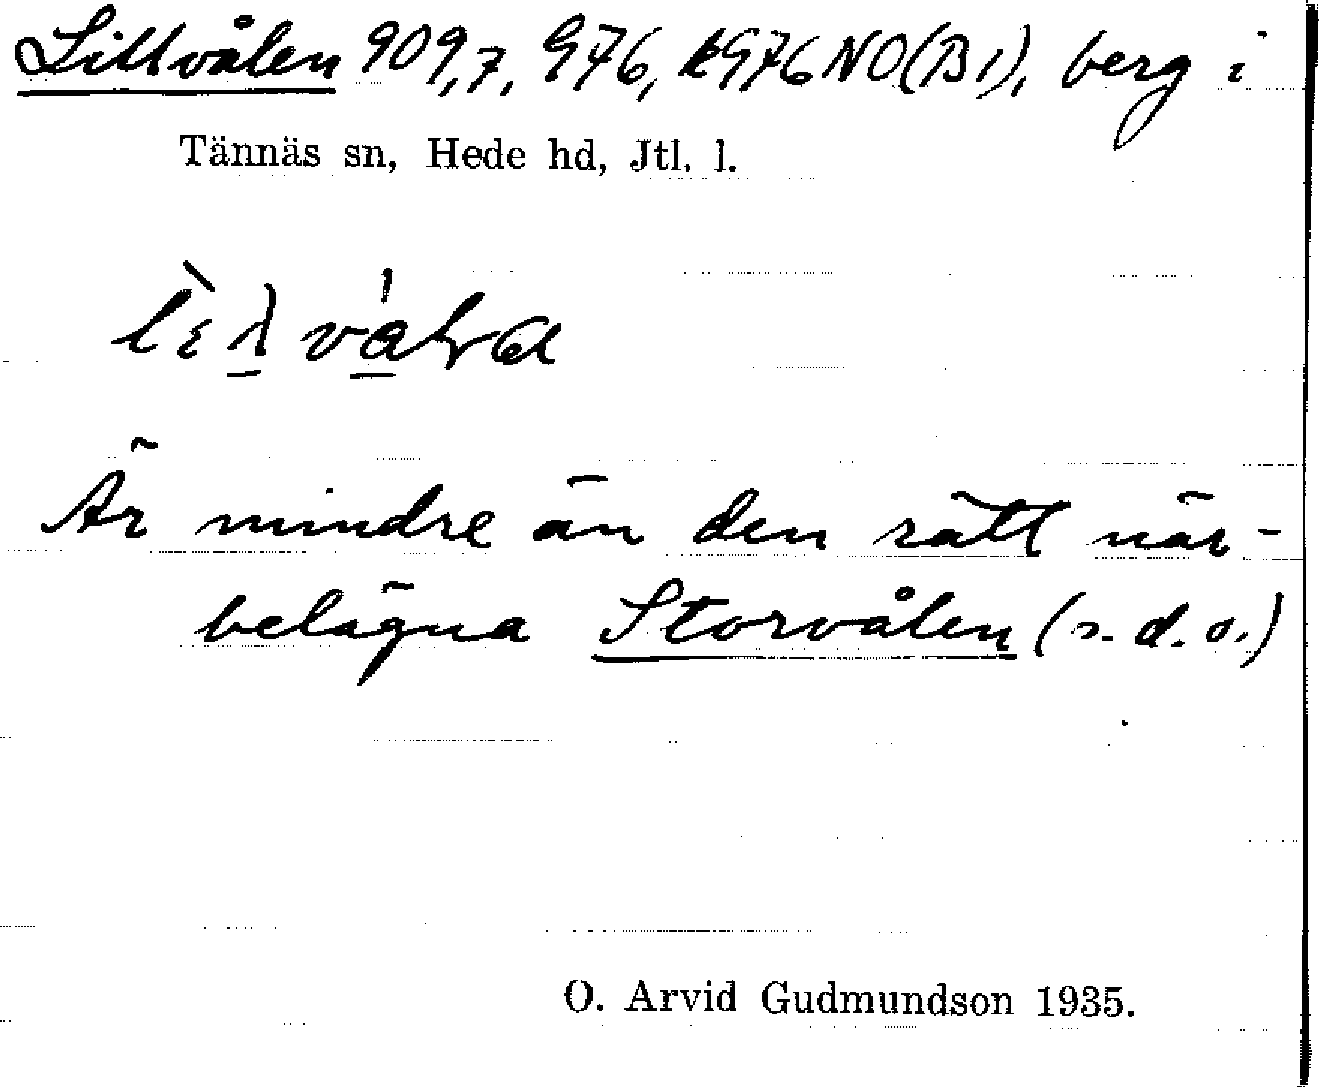 Lillvålen 909,7, G76, kG76 NO (B1), berg i
Tännäs sn, Hede hd, Jtl. l.
Är mindre än den rätt när-
belägna Storvålen (s. d. o.)
O. Arvid Gudmundson 1935.